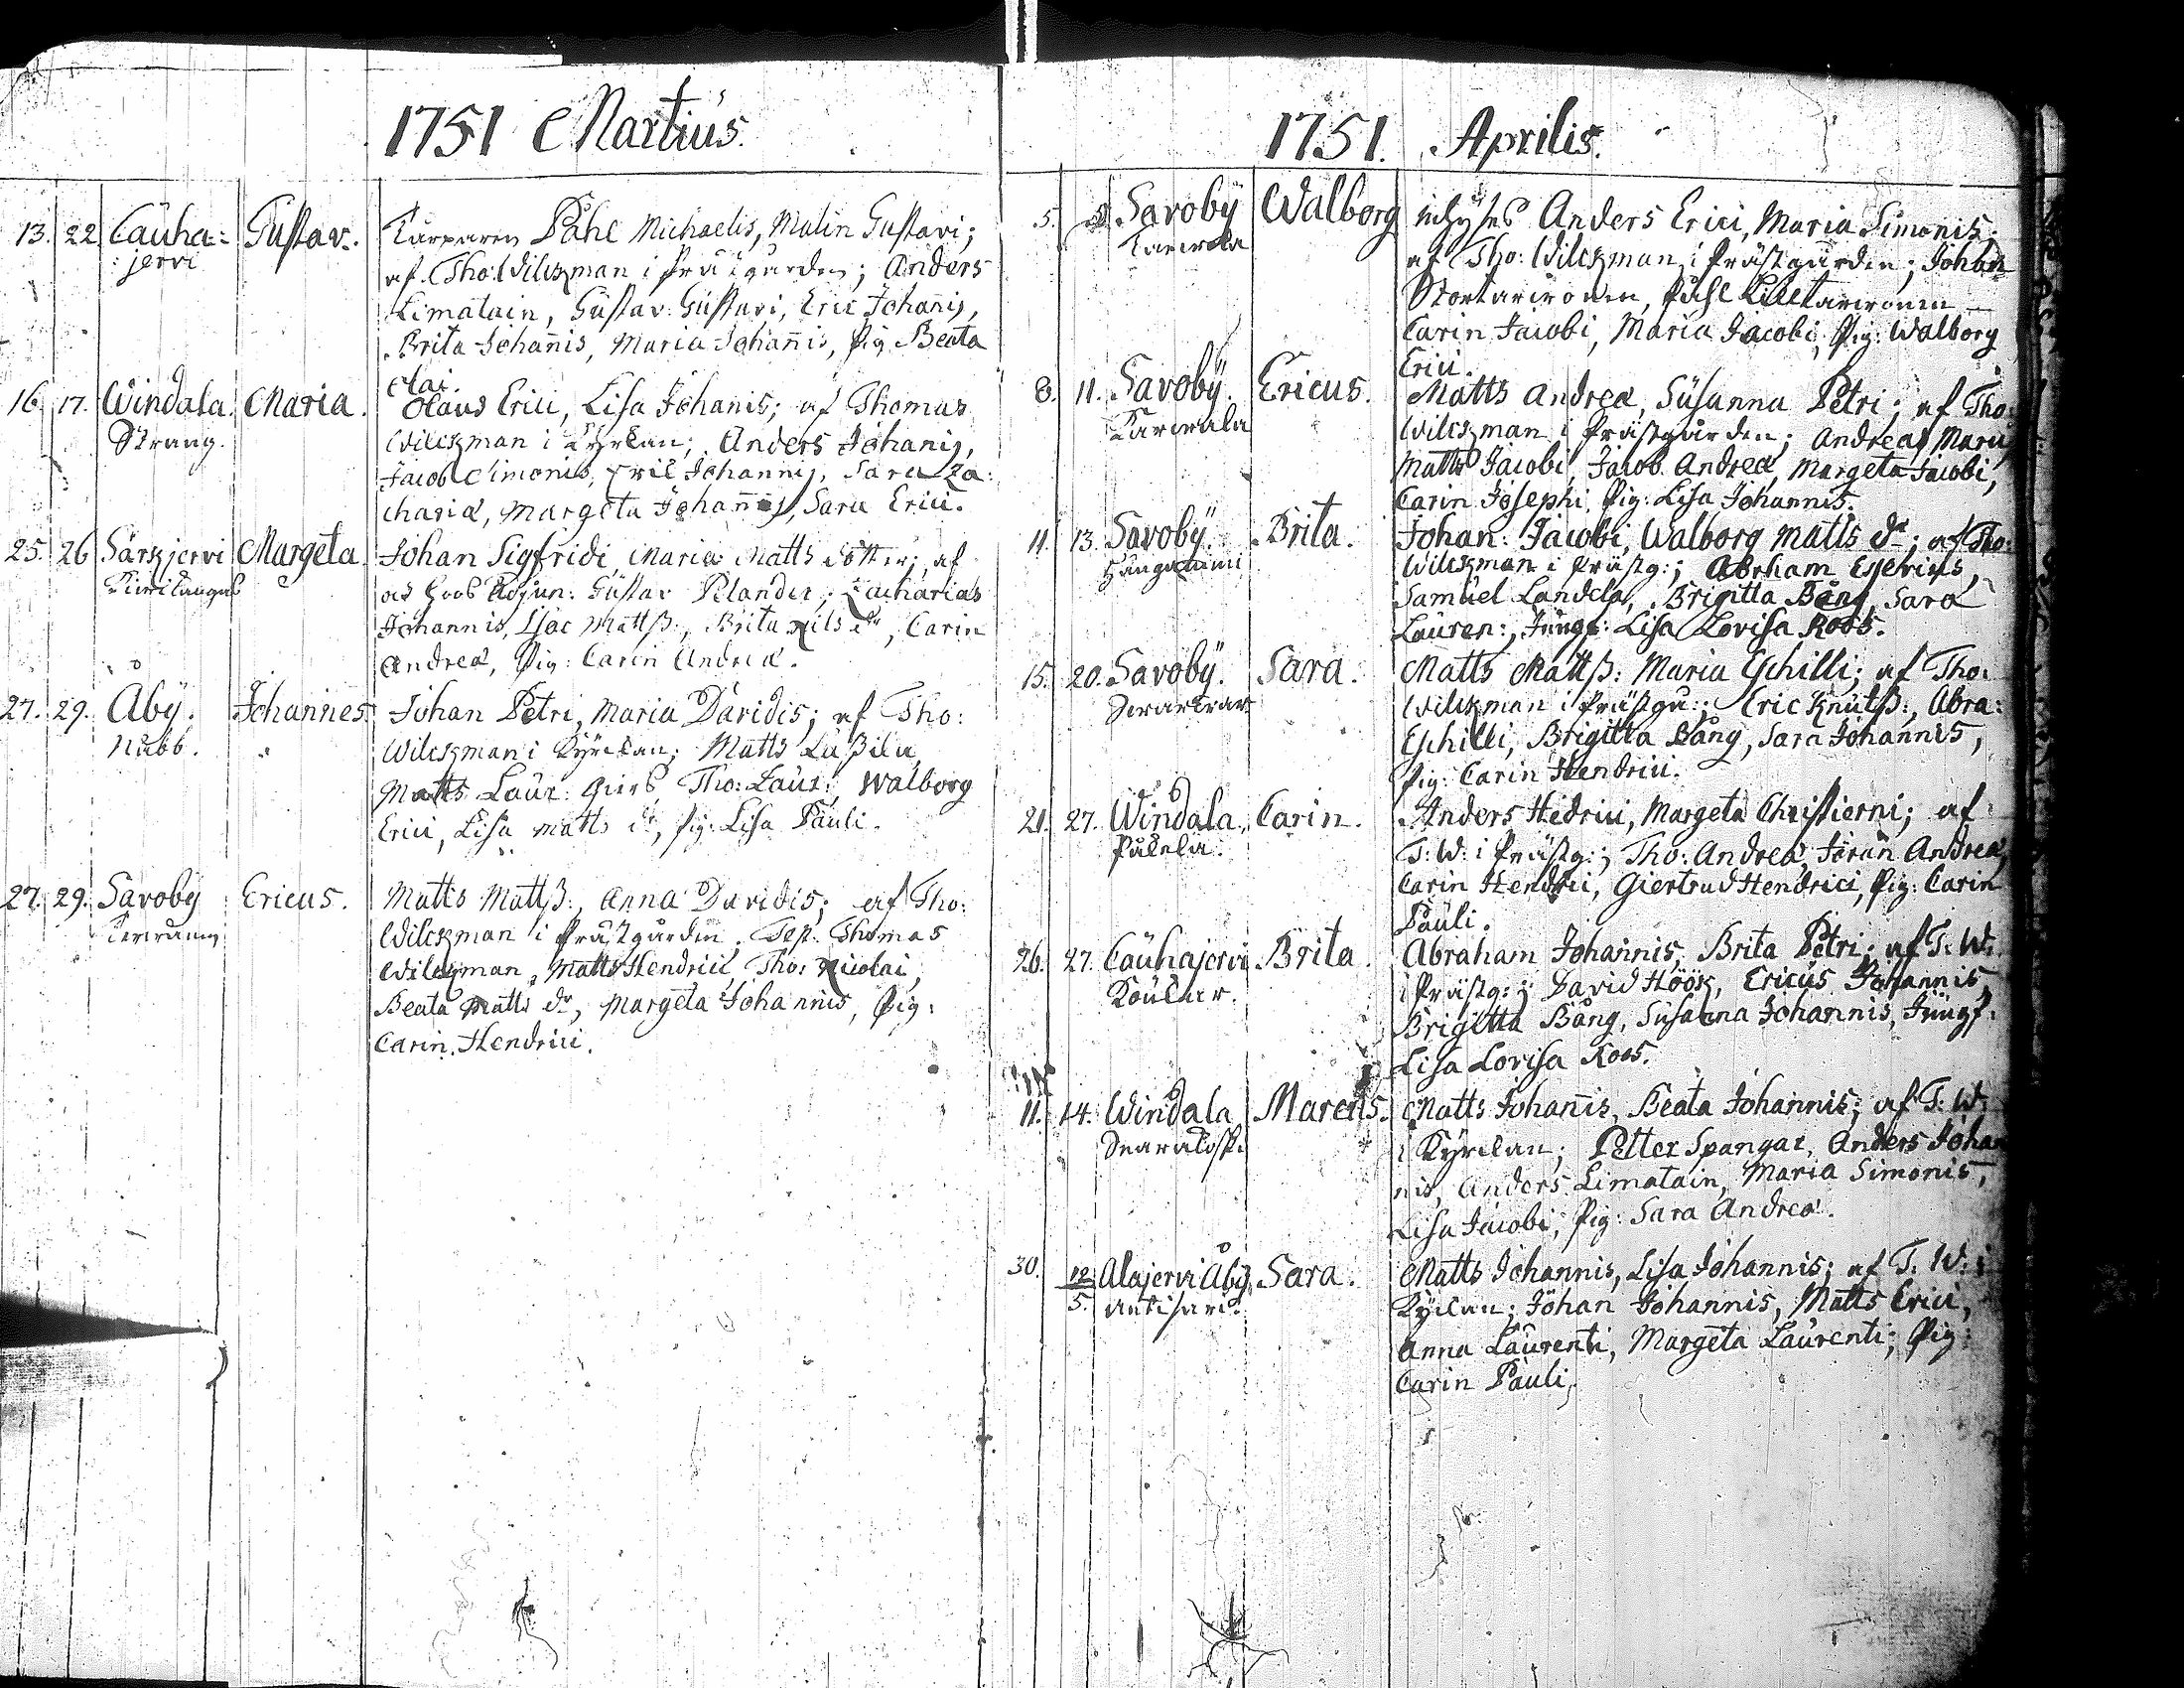 1751 Martius.
13. 22 Cauha= Gustav. Påhl Michaelis, Malin Gustavi;
jervi af Tho: Wilckman i Prästgården; Anders
Limatain, Gustav: Gustavi, Eric Johañis,
Brita Johañis, Maria Johañis, Pig Beata
Olai.
16. 17. Windala. Maria. Olaus Erici, Lisa Johanis; af Thomas
Strang. Wilckman i Kyrckan; Anders Johanis,
Jacob Simonis, Johannis, Sara Za:
chariæ, Margeta Johañis, Sara Erici.
25. 26 Särkjervi Margeta. Johan Sigfridi, Maria Matts dotter; af
Adjun: Gustav Pelander; Zacharias
Johannis, Isac Mattß:, Brita Nils dr, Carin
Andreæ, Pig: Carin Andreæ.
27. 29. Åby. Johannes. Johan Petri, Maria Davidis; af Tho:
Nubb. Wilckman i Kyrckan; Matts Laßila,
Matts Laur: Tho: Laur:, Walborg
Erici, Lisa Matts dr, Pig: Lisa Pauli.
27. 29. Savoby Ericus. Matts Mattß:, Anna Davidis; af Tho:
Wilckman i Prästgården. Tep. Thomas
Wilckman, Matts Hendrici, Tho: Nicolai,
Beata Matts dr, Margeta Johannis, Pig:
Carin Hendrici.
1751. Aprilis.
5. Savoby Walborg Anders Erici, Maria Simonis;
af Tho: Wilckman i Prästgården; Johan
Påhl
Carin Jacobi, Maria Jacobi, Pig: Walborg
Erici.
8. 11. Savoby. Ericus. Matts Andreæ, Susanna Petri; af Tho:
Karvala Wilckman i Prästgården; Andreas
Matts Jacobi, Jacob Andreæ, Margeta Jacobi,
Carin Josephi, Pig: Lisa Johannis.
11. 13. Savoby. Brita. Johan: Jacobi, Walborg Matts dr; af Tho:
Wilckman i Prästg:; Abrham
Samuel Brigitta Bång, Sara
Lauren:, Jungf: Lisa Lovisa Roos.
15. 20. Savoby. Sara. Matts Mattß: Maria Eschilli; af Tho:
Wilckman i Prästgå:; Eric Knutß:, Abra:
Eschilli, Brigitta Bång, Sara Johannis,
Pig: Carin Hendrici.
21. 27. Windala. Carin. Anders Hedrici, Margeta Christierni; af
Pålela. T: W: i Prästg:; Tho: Andreæ, Jöran Andreæ,
Carin Hendrici, Giertrud Hendrici, Pig: Carin
Pauli.
26. 27. Cauhajervi Brita. Abraham Johannis, Brita Petri; af T: W:
i Prästg:; David Höök, Ericus Johannis,
Brigitta Bång, Susanna Johannis, Jungf:
Lisa Lovisa Roos.
11. 14. Windala Marcus. Matts Johañis, Beata Johannis; af T: W:
i Kyrckan; Petter Spangar, Anders Johan
nis, Anders Limatain, Maria Simonis,
Lisa Jacobi, Pig: Sara Andreæ.
30. 12/5. Alajervi Åby. Sara. Matts Johannis, Lisa Johannis; af T: W: i
Kyrckan; Johan Johannis, Matts Erici,
Anna Laurenti, Margeta Laurenti; Pig:
Carin Pauli.